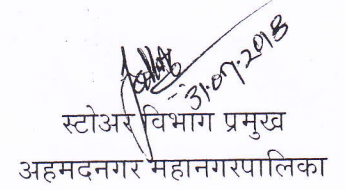 31.07.2018
स्टोअर विभाग प्रमुख
अहमदनगर महानगरपालिका